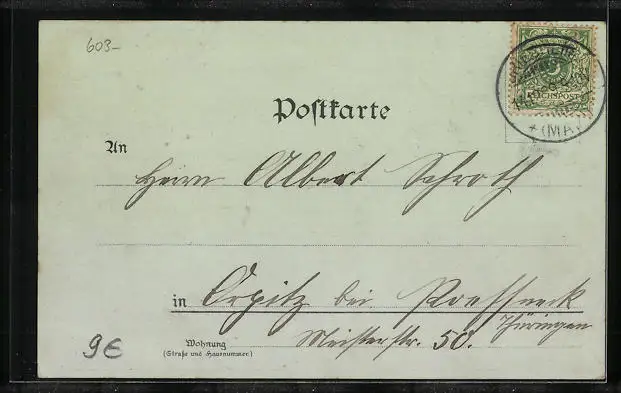 603-
REICHSPOST
+ (MA
Postkarte
An
Herrn Albert Schroth
in Orpitz bei Poessneck
Thüringen
Meisterstr. 50.
Wohnung
(Straße und Hausnummer)
9€